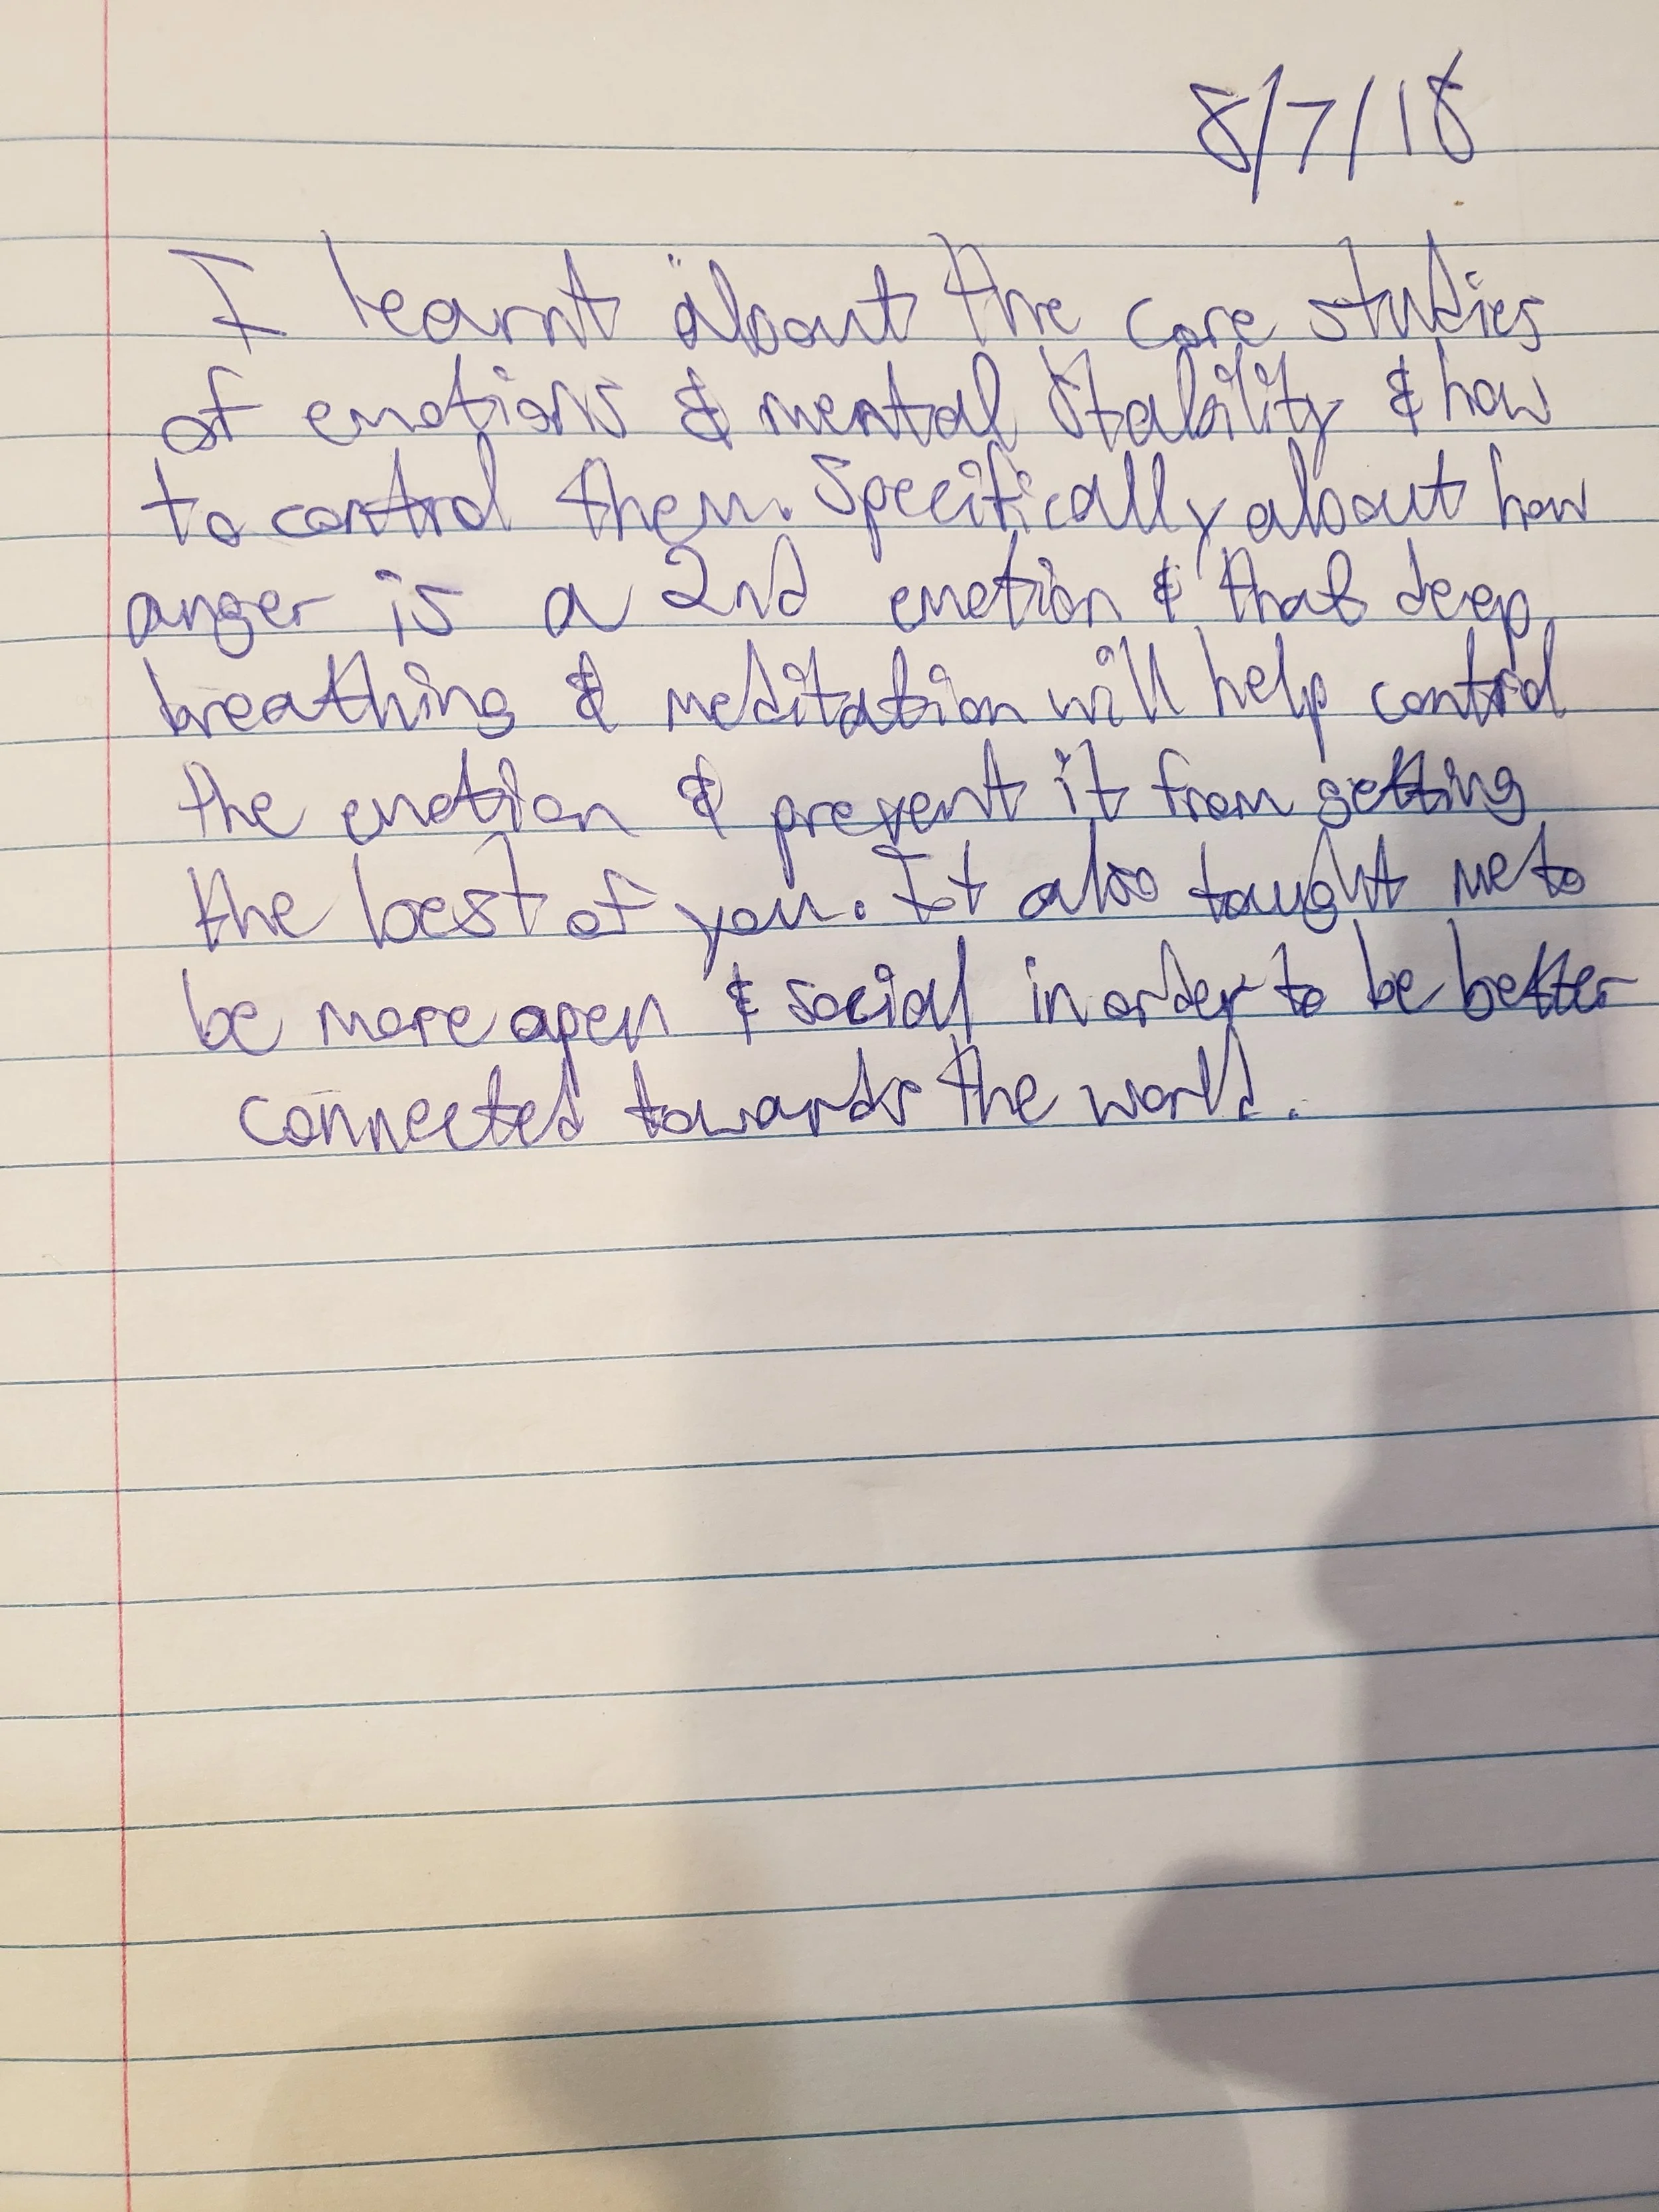 8/7/18
I learnt about the core studies
of emotions & mental stability & how
to control them. Specifically about how
anger is a 2nd emotion & that deep
breathing & meditation will help control
the emotion & prevent it from getting
the best of you. It also taught me to
be more open & social in order to be better
connected towards the world.